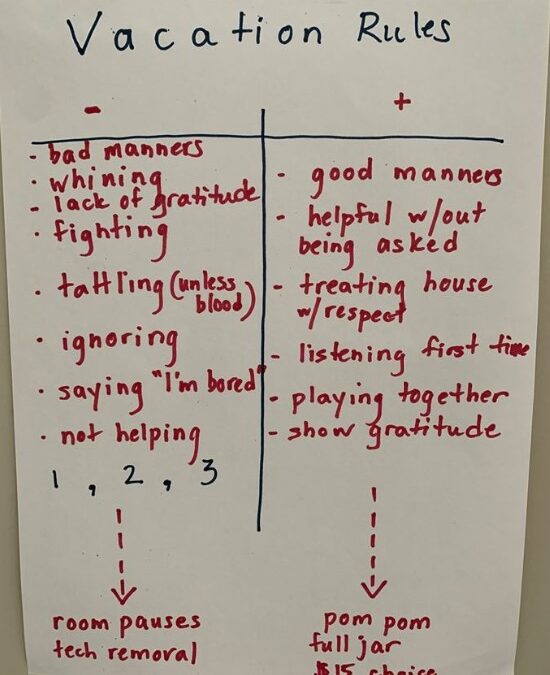 Vacation Rules
-
- bad manners
- whining
- lack of gratitude
- fighting
- tattling (unless
blood)
- ignoring
- saying "I'm bored"
- not helping
1, 2, 3
room pauses
tech removal
+
- good manners
- helpful w/out
being asked
- treating house
w/respect
- listening first time
- playing together
- show gratitude
pom pom
full jar
$15 choice